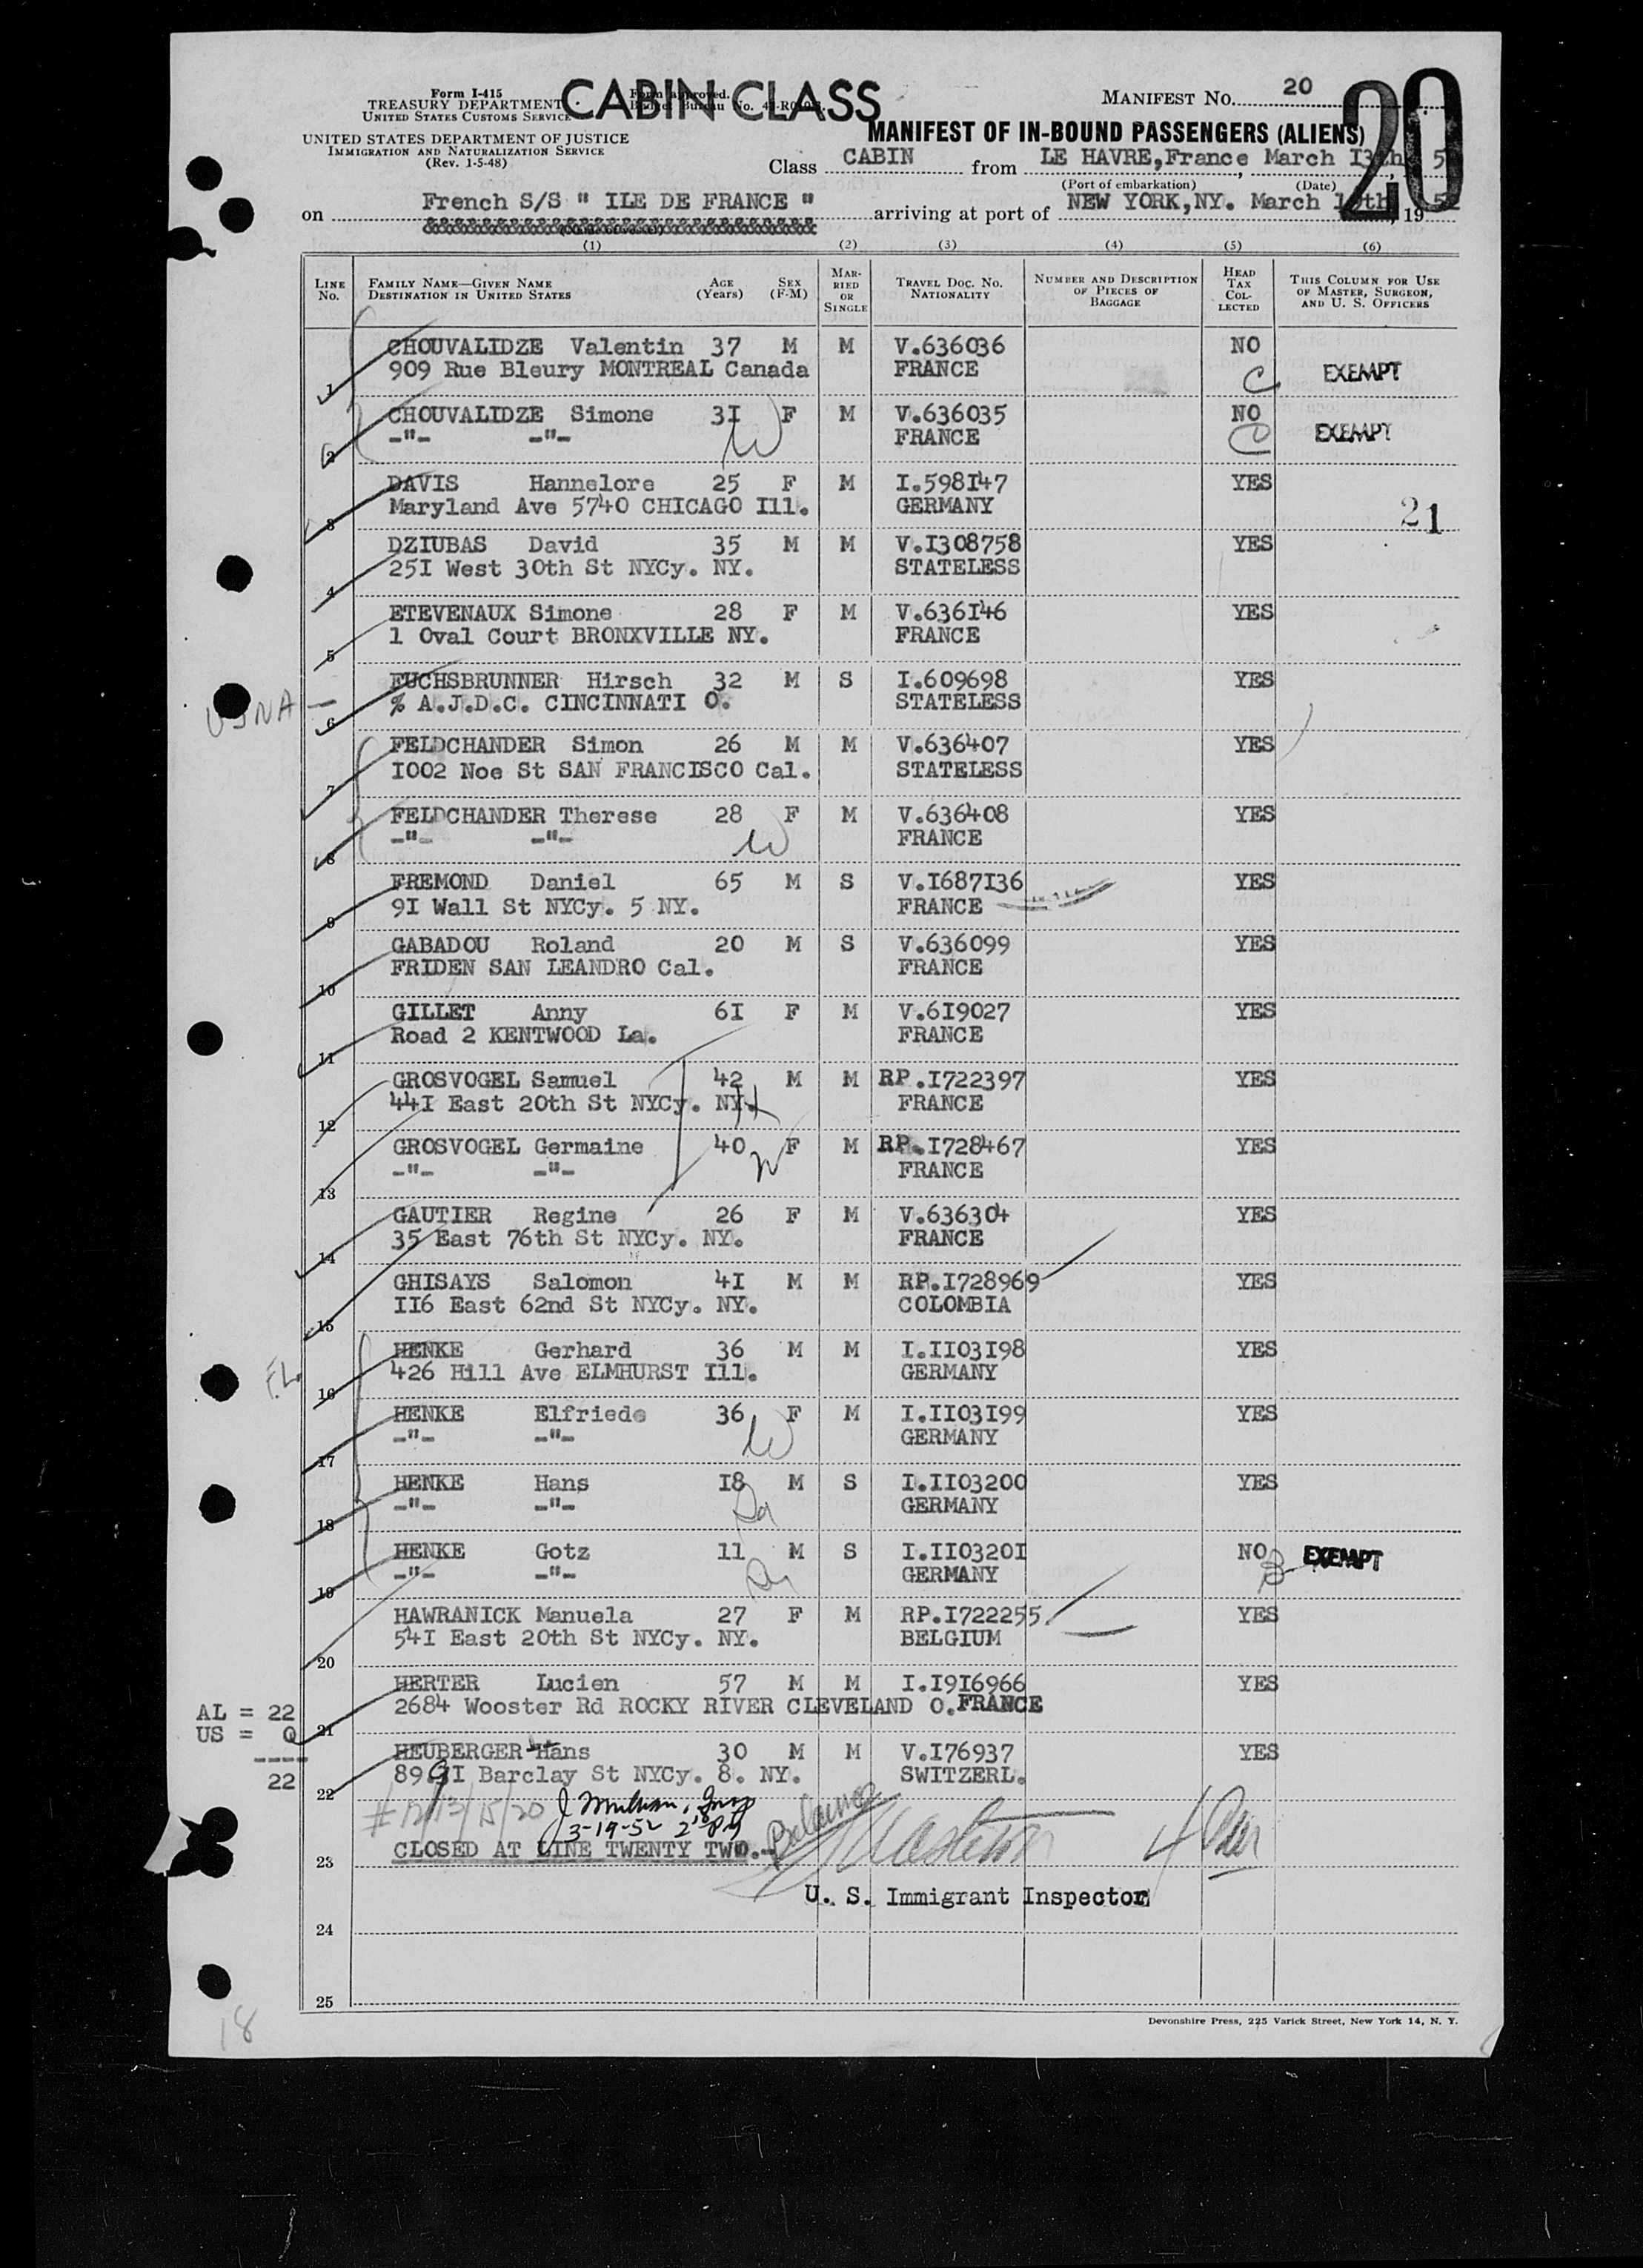 Form I-415
TREASURY DEPARTMENT
UNITED STATES CUSTOMS SERVICE
UNITED STATES DEPARTMENT OF JUSTICE
IMMIGRATION AND NATURALIZATION SERVICE
(Rev. 1-5-48)
CABIN CLASS
Form approved.
Budget Bureau No.
MANIFEST No. 20
20
MANIFEST OF IN-BOUND PASSENGERS (ALIENS)
Class CABIN from LE HAVRE,France March I3th,
(Port of embarkation) (Date)
on French S/S " ILE DE FRANCE " arriving at port of NEW YORK,NY. March 19th, 1952
(1) (2) (3) (4) (5) (6)
LINE No. FAMILY NAME—GIVEN NAME DESTINATION IN UNITED STATES AGE (Years) SEX (F-M) MARRIED OR SINGLE TRAVEL DOC. NO. NATIONALITY NUMBER AND DESCRIPTION OF PIECES OF BAGGAGE HEAD TAX COLLECTED THIS COLUMN FOR USE OF MASTER, SURGEON, AND U. S. OFFICERS
CHOUVALIDZE Valentin 37 M M V.636036 NO
1 909 Rue Bleury MONTREAL Canada FRANCE C EXEMPT
CHOUVALIDZE Simone 3I F M V.636035 NO
2 -"- -"- W FRANCE C EXEMPT
DAVIS Hannelore 25 F M I.598I47 YES
3 Maryland Ave 5740 CHICAGO Ill. GERMANY 21
DZIUBAS David 35 M M V.I308758 YES
4 25I West 30th St NYCy. NY. STATELESS
ETEVENAUX Simone 28 F M V.636I46 YES
5 1 Oval Court BRONXVILLE NY. FRANCE
FUCHSBRUNNER Hirsch 32 M S I.609698 YES
USNA — 6 % A.J.D.C. CINCINNATI O. STATELESS
FELDCHANDER Simon 26 M M V.636407 YES
7 I002 Noe St SAN FRANCISCO Cal. STATELESS
FELDCHANDER Therese 28 F M V.636408 YES
8 -"- -"- W FRANCE
FREMOND Daniel 65 M S V.I687I36 YES
9 9I Wall St NYCy. 5 NY. FRANCE
GABADOU Roland 20 M S V.636099 YES
10 FRIDEN SAN LEANDRO Cal. FRANCE
GILLET Anny 6I F M V.6I9027 YES
11 Road 2 KENTWOOD La. FRANCE
GROSVOGEL Samuel 42 M M RP.I722397 YES
12 44I East 20th St NYCy. NY. H FRANCE
GROSVOGEL Germaine 40 F M RP.I728467 YES
13 -"- -"- W FRANCE
GAUTIER Regine 26 F M V.636304 YES
14 35 East 76th St NYCy. NY. FRANCE
GHISAYS Salomon 4I M M RP.I728969 YES
15 II6 East 62nd St NYCy. NY. COLOMBIA
HENKE Gerhard 36 M M I.II03I98 YES
16 426 Hill Ave ELMHURST Ill. GERMANY
HENKE Elfriede 36 F M I.II03I99 YES
17 -"- -"- W GERMANY
HENKE Hans I8 M S I.II03200 YES
18 -"- -"- GERMANY
HENKE Gotz 11 M S I.II0320I NO EXEMPT
19 -"- -"- GERMANY
HAWRANICK Manuela 27 F M RP.I722255 YES
20 54I East 20th St NYCy. NY. BELGIUM
HERTER Lucien 57 M M I.I9I6966 YES
21 2684 Wooster Rd ROCKY RIVER CLEVELAND O. FRANCE
AL = 22
US = 0
----
22
HEUBERGER Hans 30 M M V.I76937 YES
22 89.9I Barclay St NYCy. 8. NY. SWITZERL.
# 12/13/15/20
3-19-52 2 PM
23 CLOSED AT LINE TWENTY TWO.-
U. S. Immigrant Inspector
24
25
Devonshire Press, 225 Varick Street, New York 14, N. Y.
18